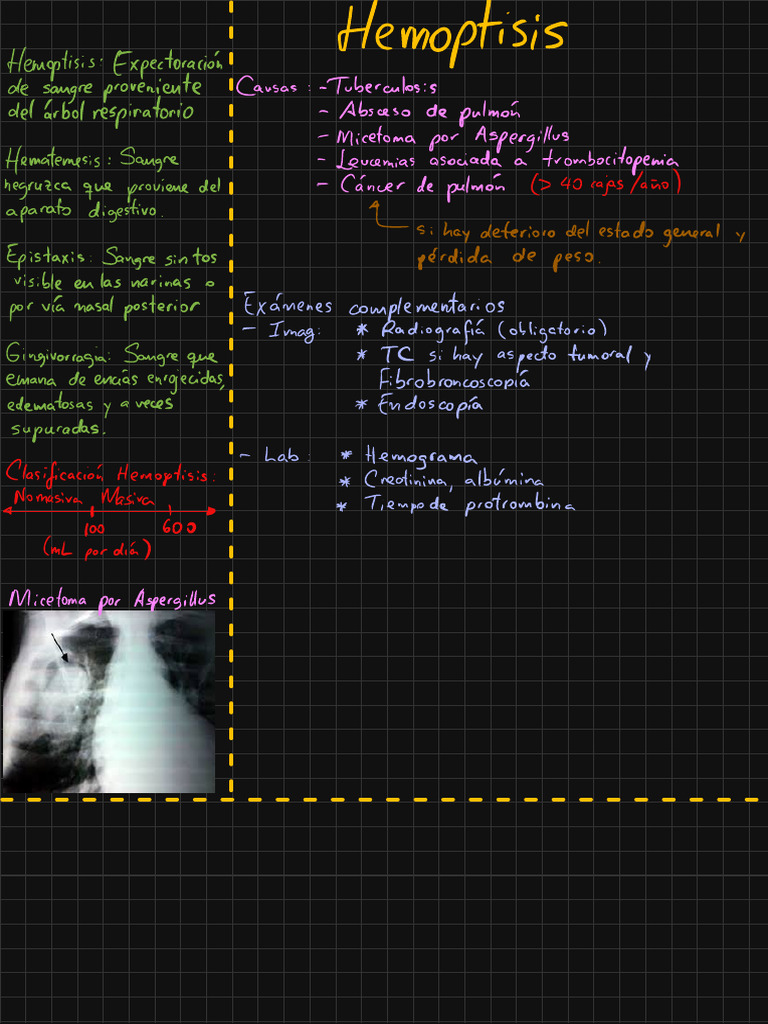 Hemoptisis
Hemoptisis: Expectoración
de sangre proveniente
del árbol respiratorio
Hematemesis: Sangre
negruzca que proviene del
aparato digestivo.
Epistaxis: Sangre sin tos
visible en las narinas o
por vía nasal posterior
Gingivorragia: Sangre que
emana de encías enrojecidas,
edematosas y a veces
supuradas.
Clasificación Hemoptisis:
No masiva Masiva
100 600
(mL por día)
Micetoma por Aspergillus
Causas: - Tuberculosis
- Absceso de pulmón
- Micetoma por Aspergillus
- Leucemias asociada a trombocitopenia
- Cáncer de pulmón (> 40 cajas/año)
si hay deterioro del estado general y
pérdida de peso.
Exámenes complementarios
- Imag: * Radiografía (obligatorio)
* TC si hay aspecto tumoral y
Fibrobroncoscopía
* Endoscopía
- Lab: * Hemograma
* Creatinina, albúmina
* Tiempo de protrombina